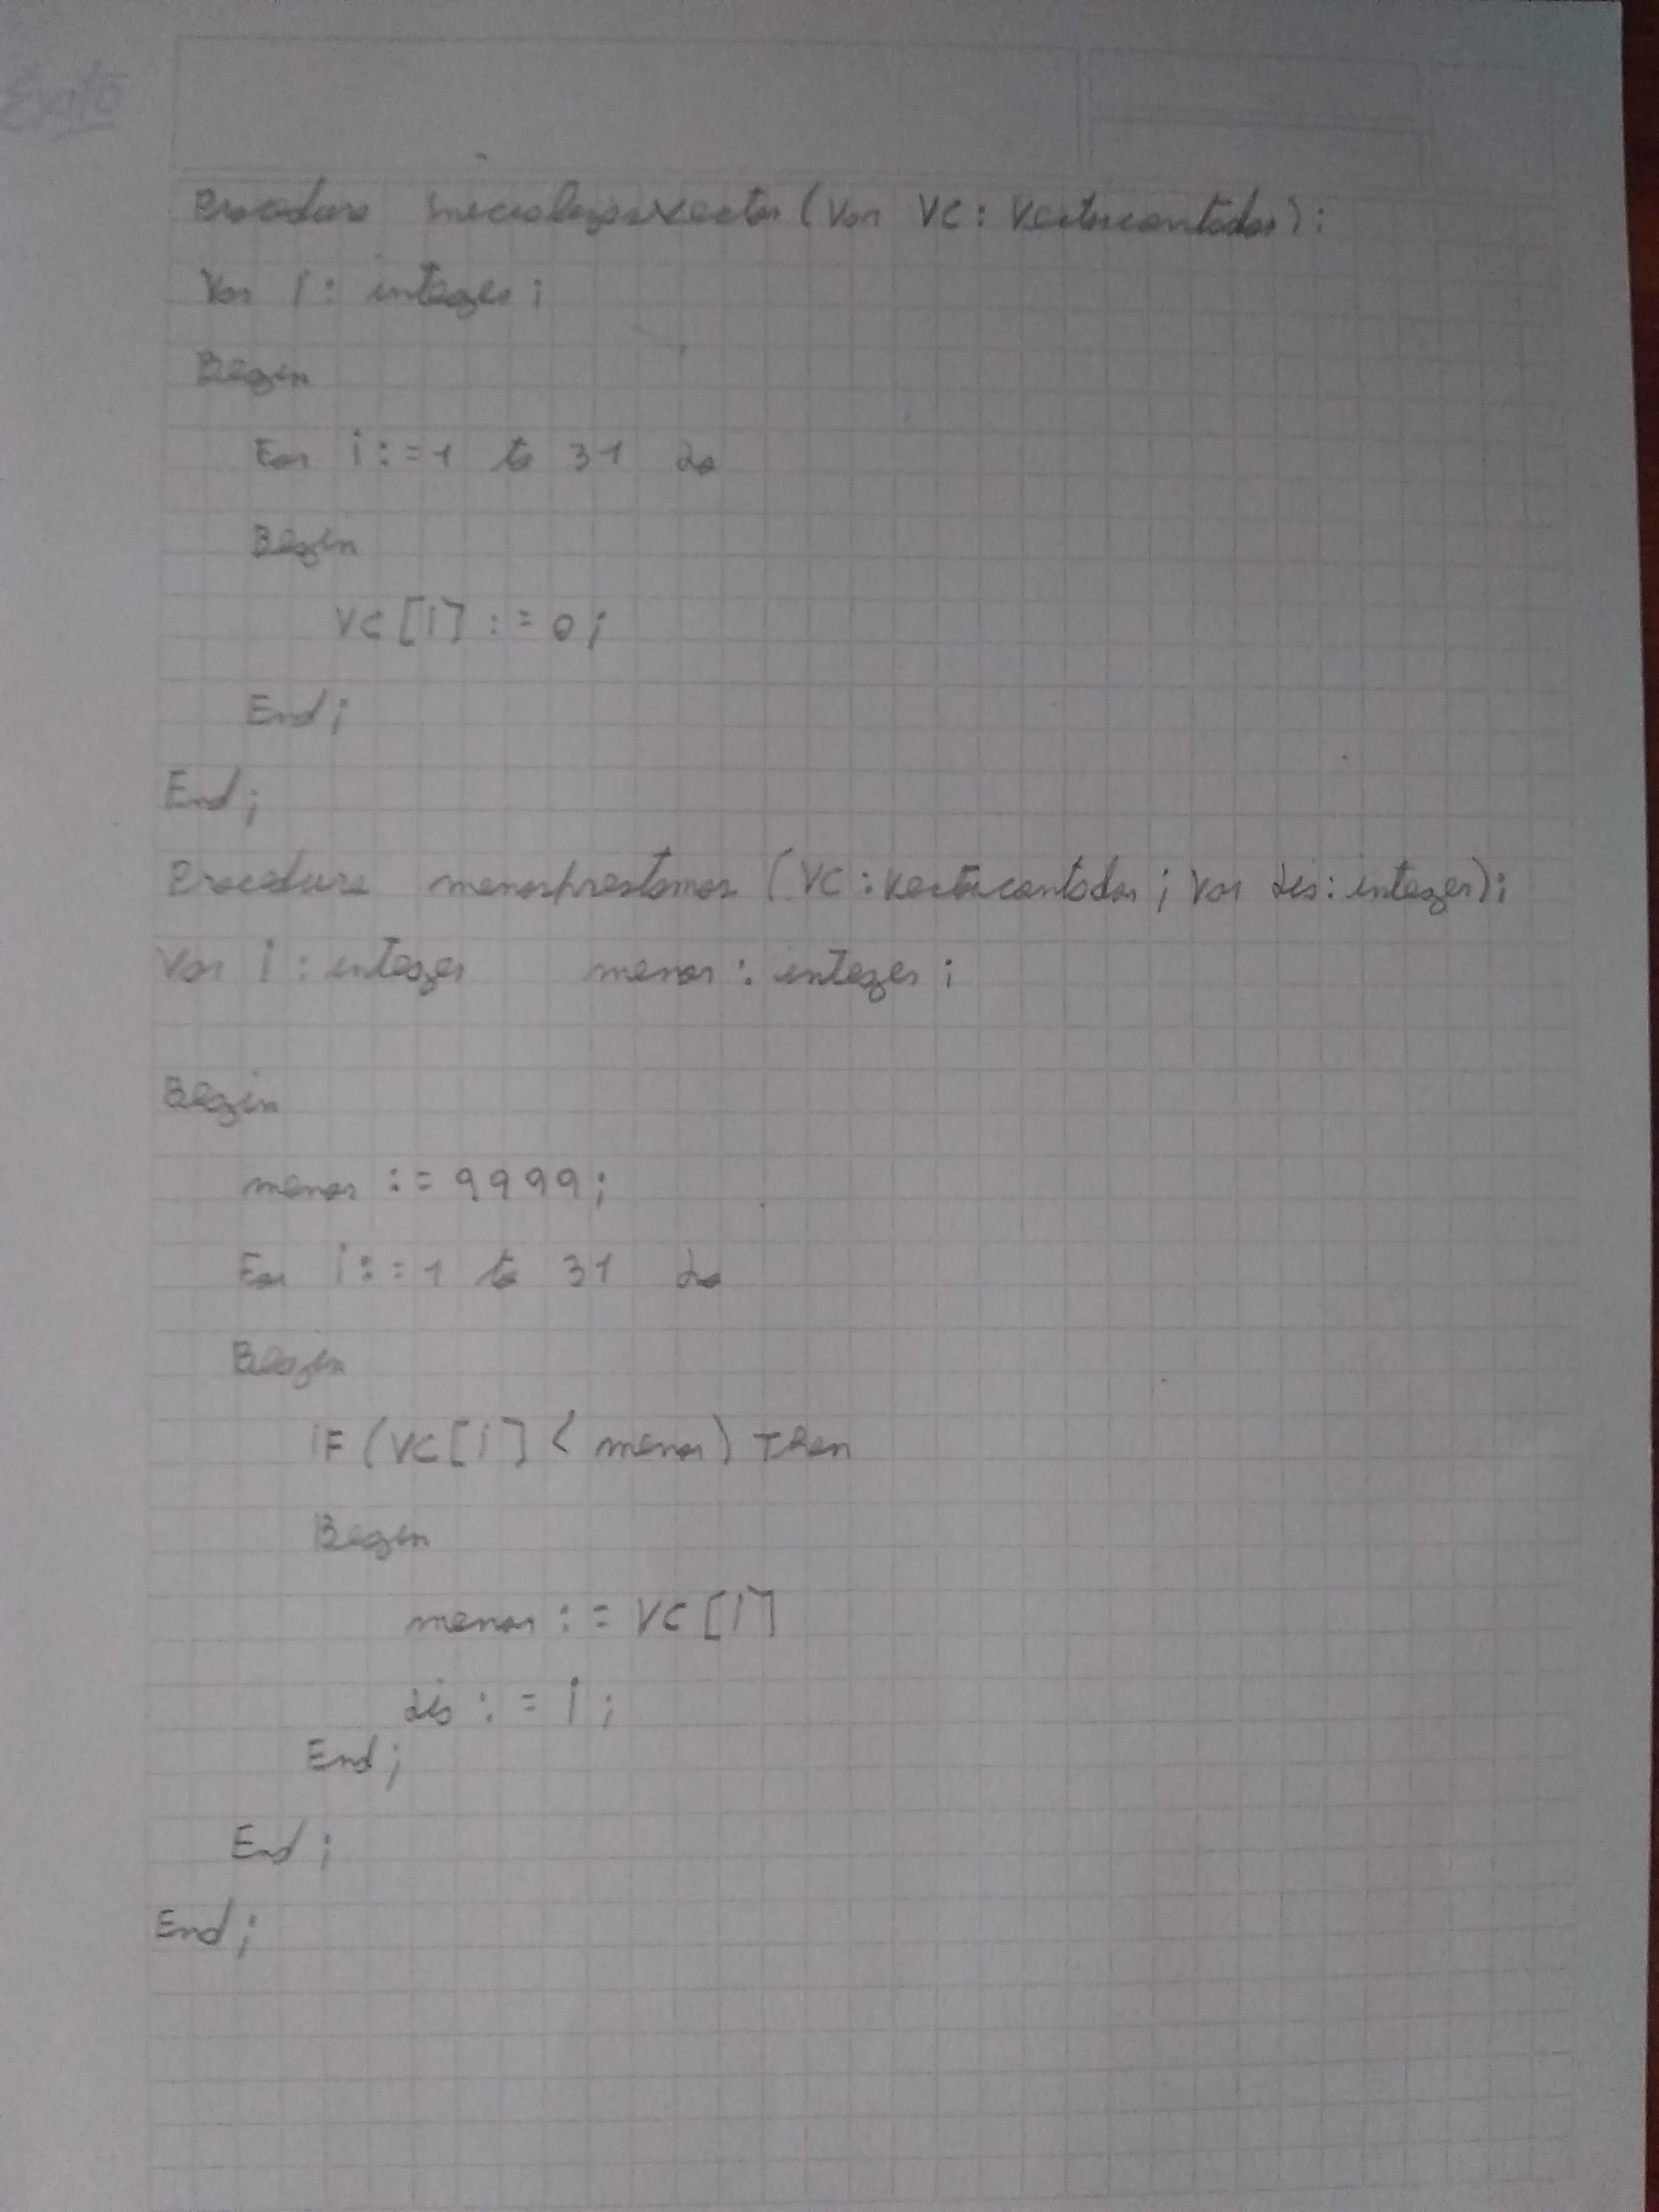 Exito
Procedure inicializarvector (Var VC: Vectorcontador);
Var i: integer;
Begin
For i:=1 to 31 do
Begin
VC[i] := 0;
End;
End;
Procedure menosprestamos (VC: vectorcontador; var dis: integer);
Var i: integer menor: integer;
Begin
menor := 9999;
For i:=1 to 31 do
Begin
IF (VC[i] < menor) Then
Begin
menor := VC[i]
dis := i;
End;
End;
End;